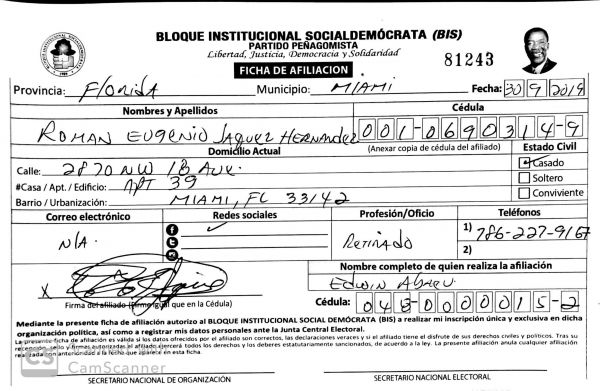 BLOQUE INSTITUCIONAL SOCIALDEMÓCRATA (BIS)
PARTIDO PEÑAGOMISTA
Libertad, Justicia, Democracia y Solidaridad
81243
FICHA DE AFILIACION
Provincia: Florida Municipio: MIAMI Fecha: 30/9/2019
Nombres y Apellidos Cédula
ROMAN EUGENIO JAQUEZ HERNANDEZ 001-0690314-9
Domicilio Actual (Anexar copia de cédula del afiliado) Estado Civil
Calle: 2870 NW 18 AVE. Casado
#Casa / Apt. / Edificio: APT 39 Soltero
Barrio / Urbanización: MIAMI, FL 33142 Conviviente
Correo electrónico Redes sociales Profesión/Oficio Teléfonos
N/A. RETIRADO 1) 786-227-9167
2)
Nombre completo de quien realiza la afiliación
X Edwin Abreu
Firma del afiliado (Firma igual que en la Cédula) Cédula: 048-0000015-2
Mediante la presente ficha de afiliación autorizo al BLOQUE INSTITUCIONAL SOCIAL DEMÓCRATA (BIS) a realizar mi inscripción única y exclusiva en dicha
organización política, así como a registrar mis datos personales ante la Junta Central Electoral.
La presente ficha de afiliación es válida si los datos ofrecidos por el afiliado son correctos, las declaraciones veraces y si el afiliado tiene el disfrute de sus derechos civiles y políticos. Tras su
recepción, sello y firmas autorizadas el afiliado ejercerá todos los derechos y los deberes estatutariamente sancionados, de acuerdo a la ley. La presente afiliación anula cualquier afiliación
realizada con anterioridad a la fecha que aparece en esta ficha.
CS CamScanner
SECRETARIO NACIONAL DE ORGANIZACIÓN SECRETARIO NACIONAL ELECTORAL